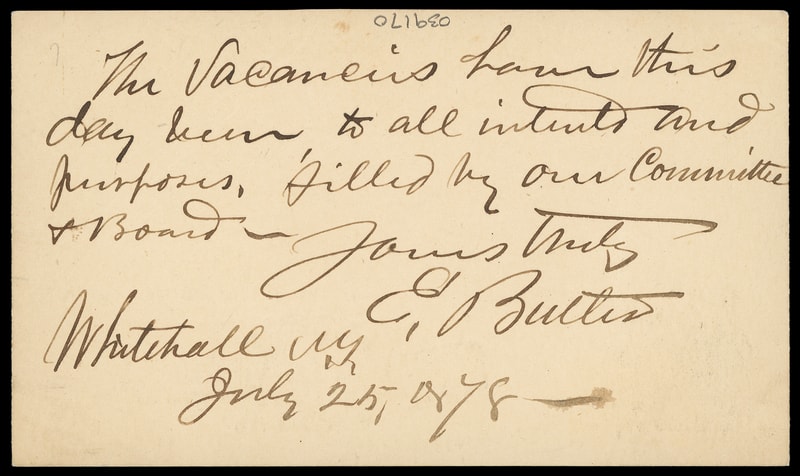 039170
The Vacancies have this
day been, to all intents and
purposes, filled by our Committee
& Board —
Yours truly
E. Butts
Whitehall NY
July 25, 1878 —